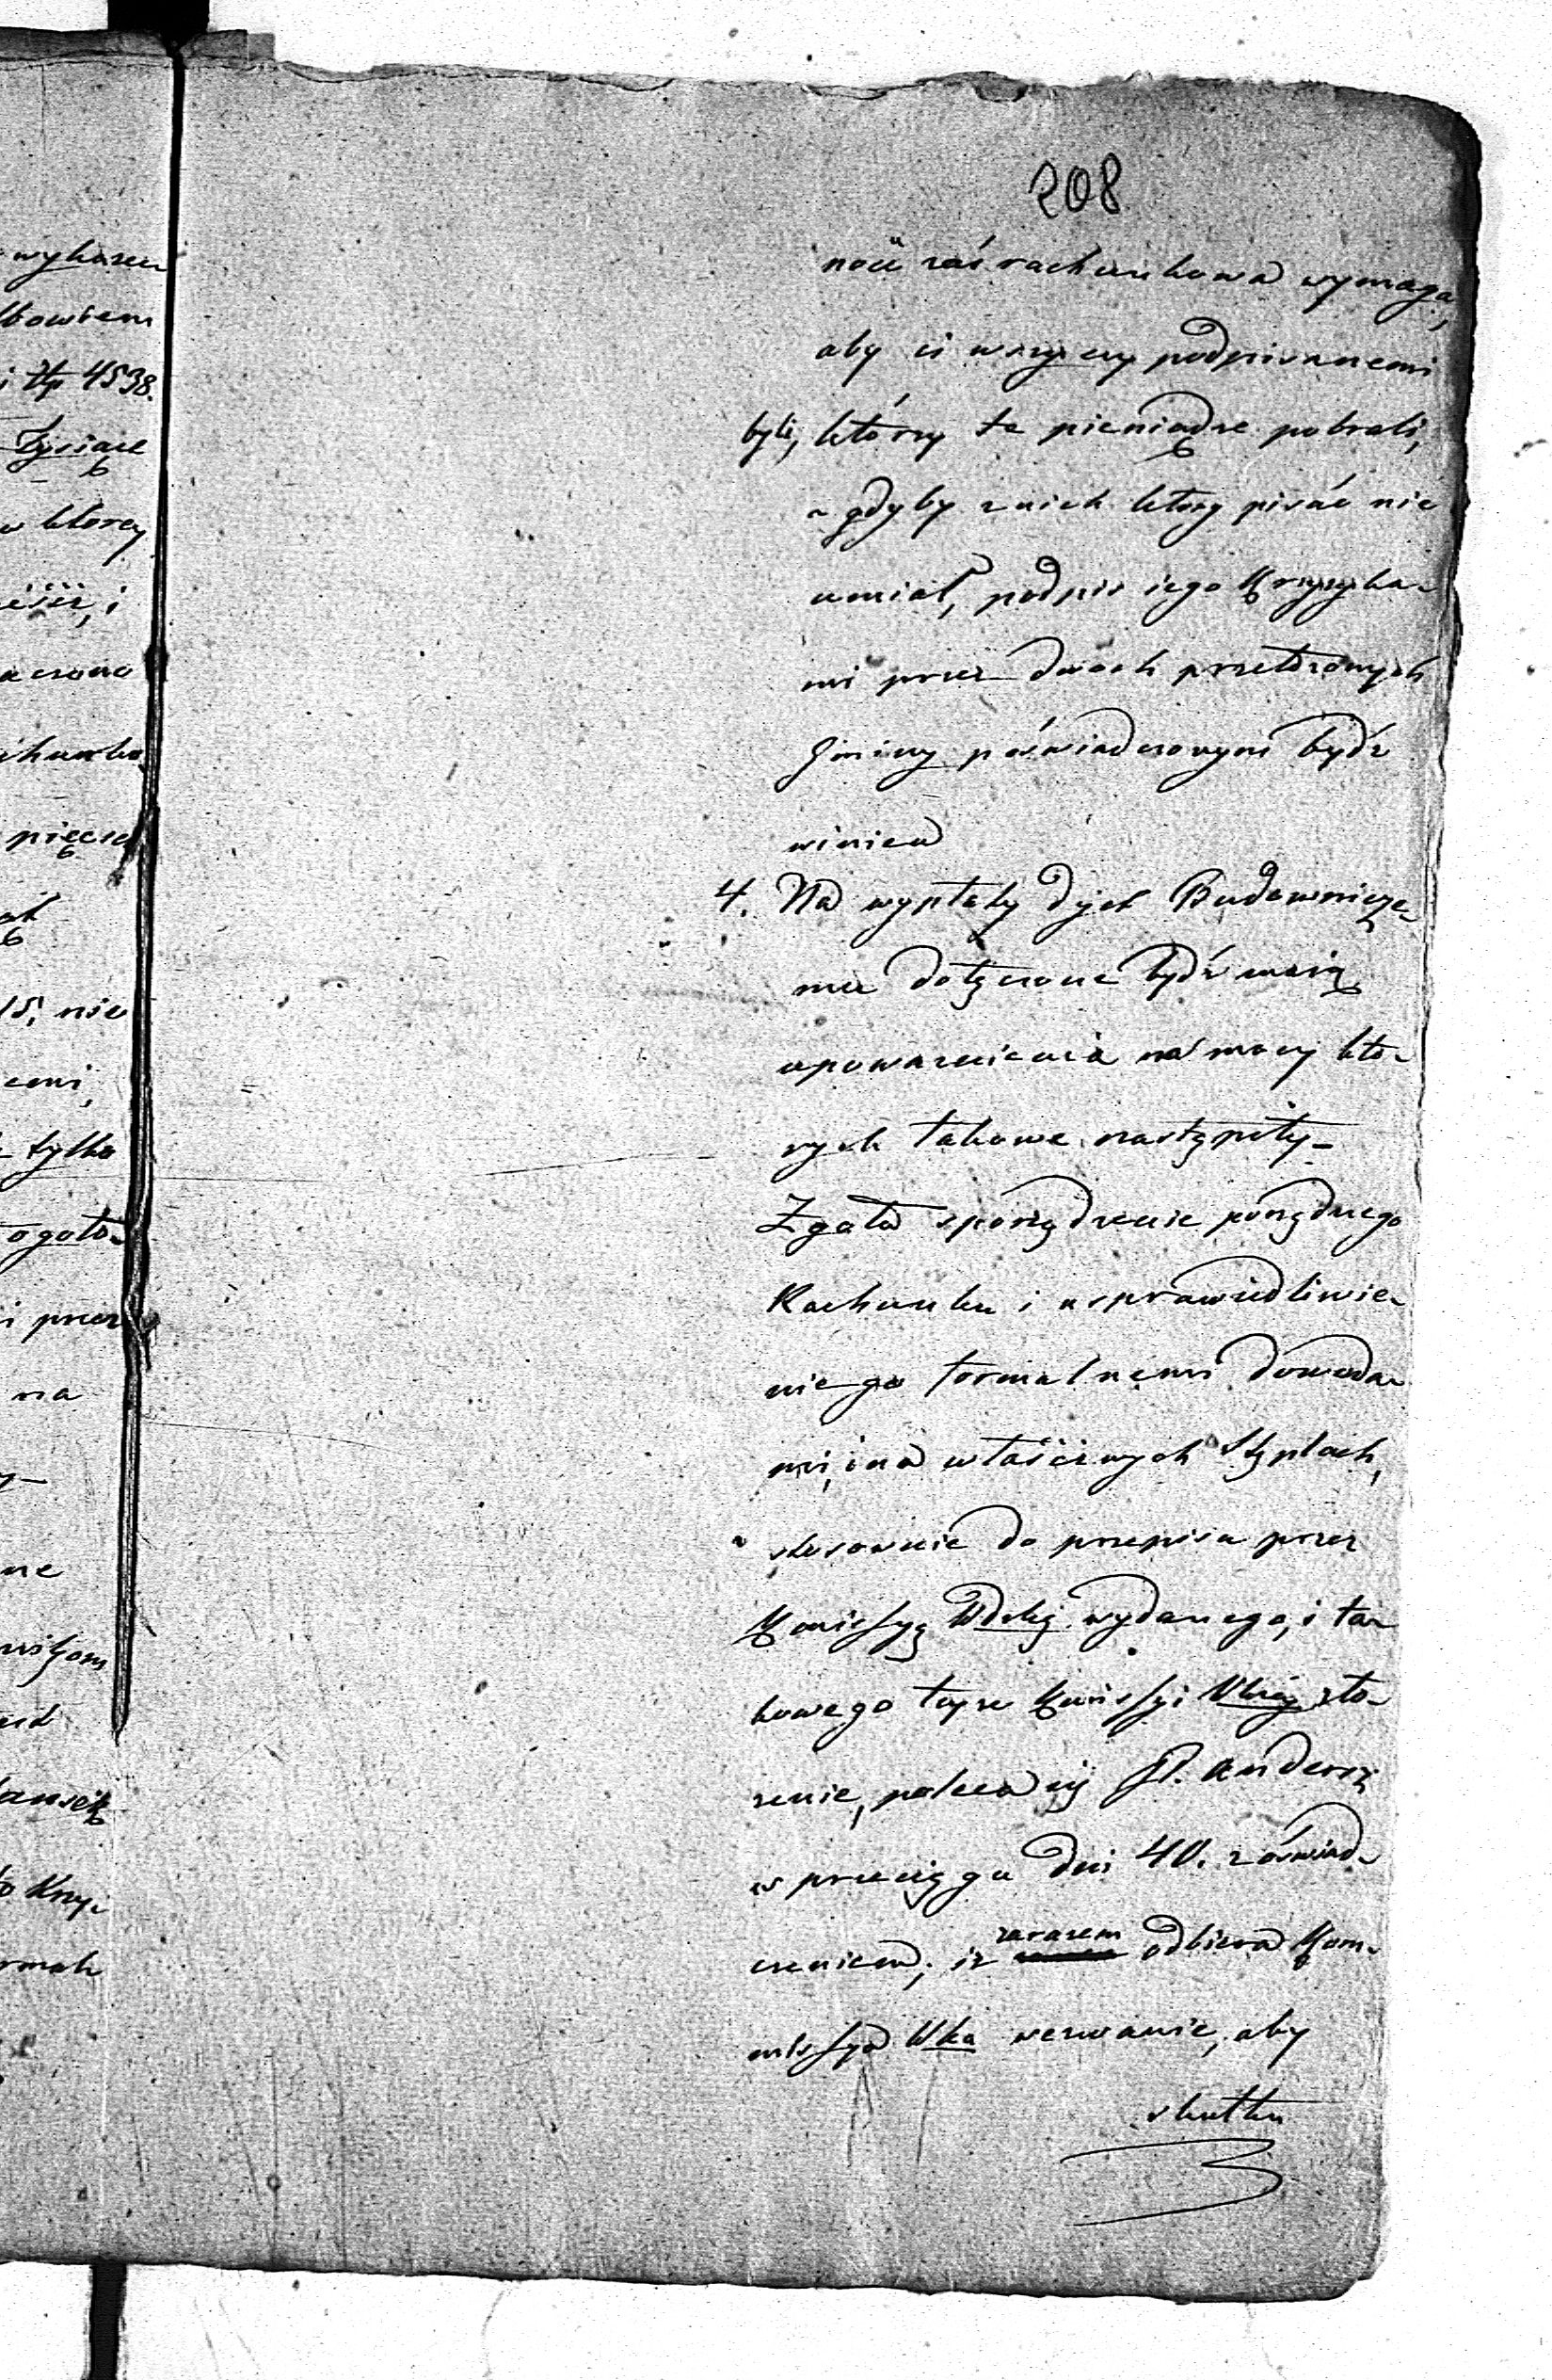 208
ność zaś rachunkowa wymaga,
aby ci wszyscy podpisanemi
byli, którzy te pieniądze pobrali,
a gdyby z nich który pisać nie
umiał, podpis iego Krzyzyka-
mi przez dwóch przełożonych
Gminy poświadczonym bydź
winien
4. Na wypłaty dyet Budownicze-
mu dołączone bydź maią
upoważnienia na mocy któ-
rych takowe nastąpiły -
Zgoła sporządzenie porządnego
Rachunku i usprawiedliwie-
nie go formalnemi dowoda-
mi, i na właściwych Stęplach,
stosownie do przepisu przez
Kommissyę Wdzką wydanego, i ta-
kowego teyże Kommissyi Wkiéj zło-
żenie, poleca się P. Andersz
w przeciągu dni 40. z oświad-
czeniem, iż zarazem odbiera Kom-
missya Wka wezwanie, aby
skutku
wykazu
bowiem
i złp 4538.
Tysiące
w którey
i
pięćd
15, nie
emi,
tylko
ogoło-
i przez
na
ne
to Krzy-